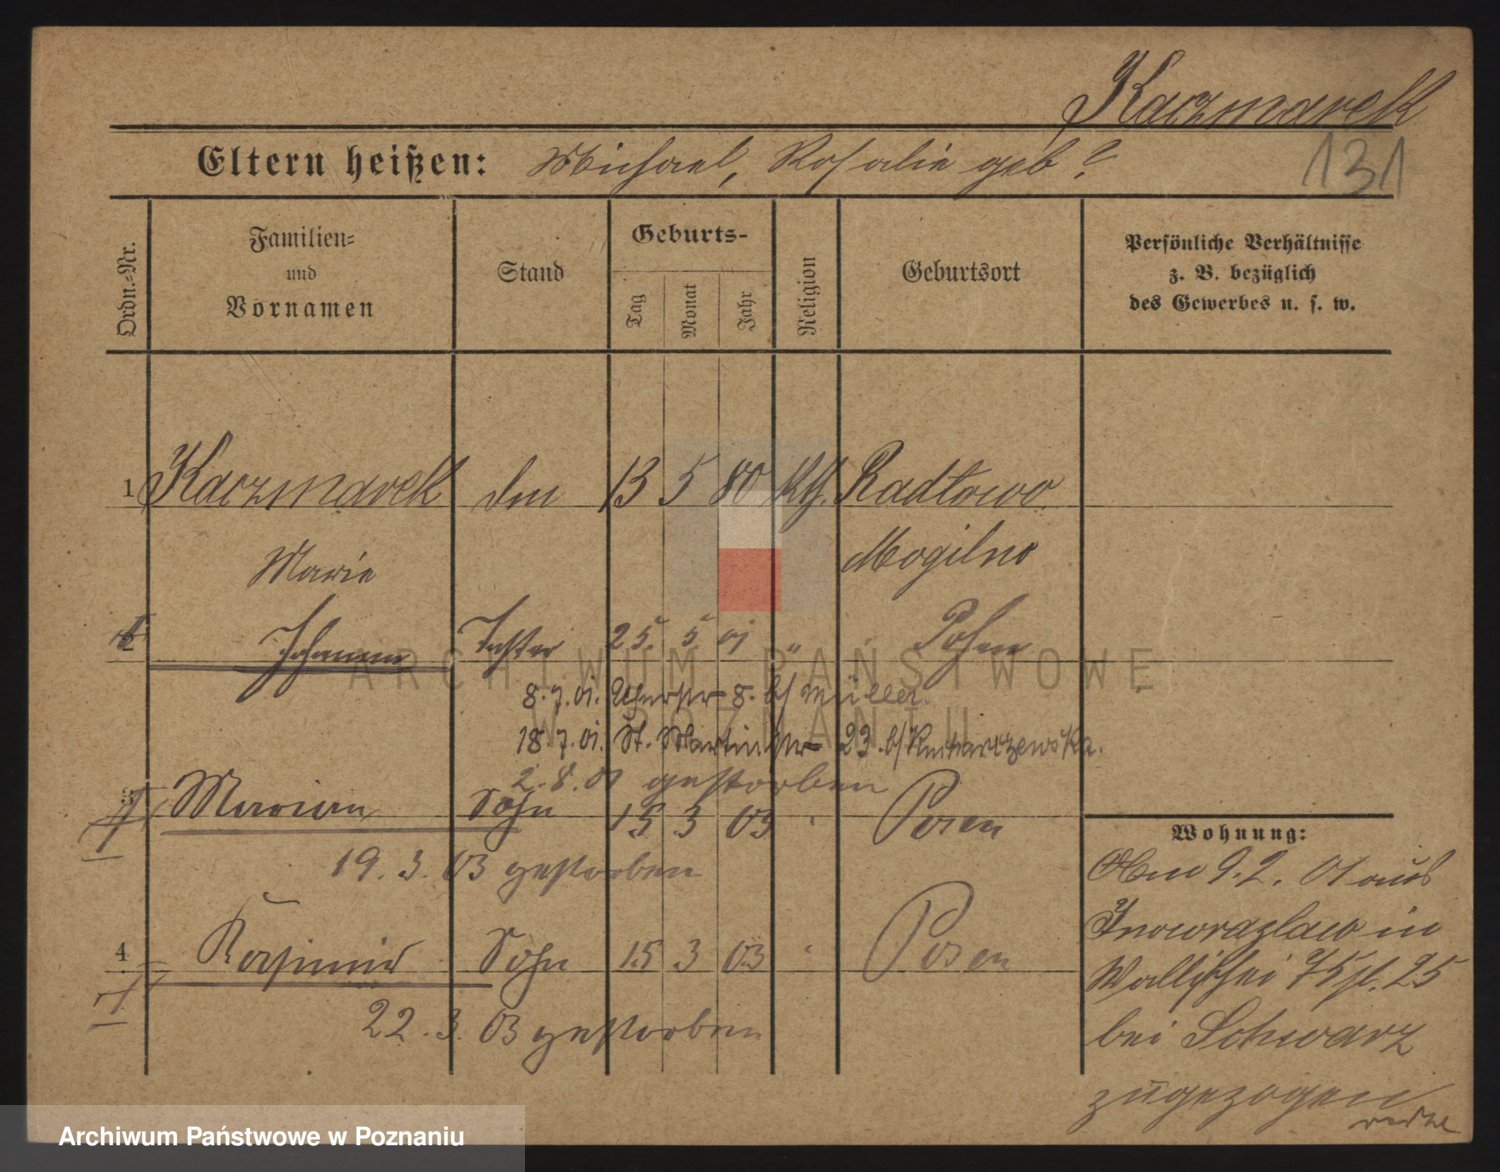 Kaczmarek
Eltern heißen: Michael, Rosalie geb ?
131
Ordn.-Nr.
Familien- und Vornamen
Stand
Geburts-
Tag
Monat
Jahr
Religion
Geburtsort
Persönliche Verhältnisse
z. B. bezüglich
des Gewerbes u. s. w.
1 Kaczmarek 13 5 80 Kth. Radłowo
Marie Mogilno
Johanna Tochter 25. 5 01 "
8.7.01. 8. b/ Müller.
18.7.01. St. Martinstr 23. b/
2.8.01 gestorben
Marian Sohn 15 3 03 Posen
19.3.03 gestorben
4 Kasimir Sohn 15 3 03 Posen
22.3.03 gestorben
Wohnung:
9.2.01 aus
Inowrazlaw in
Wallischei 75 25
bei Schwarz
zugezogen
ARCHIWUM PAŃSTWOWE
W POZNANIU
Archiwum Państwowe w Poznaniu